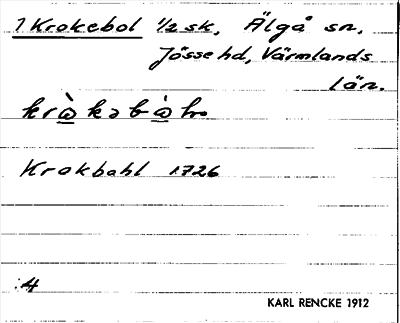 1 Krokebol 1/2 sk, Älgå sn.
Jösse hd, Värmlands
län.
Krokbahl 1726
:4
KARL RENCKE 1912